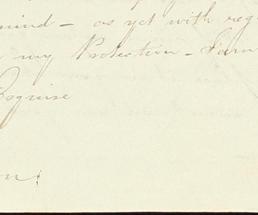 mind – as yet with reg
my Protection – I am
Esquire
on: